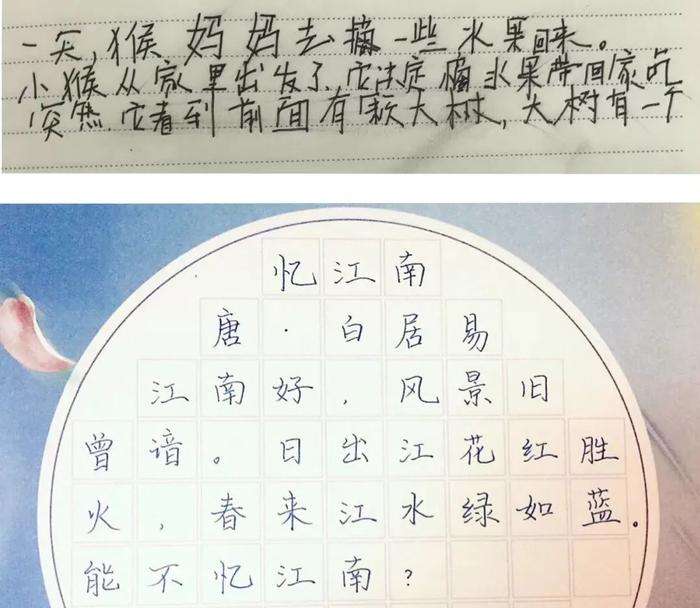 一天,猴妈妈去摘一些水果回来。
小猴从家里出发了,它决定摘水果带回家吃
突然,它看到前面有棵大树,大树有一个
忆江南
唐·白居易
江南好,风景旧
曾谙。日出江花红胜
火,春来江水绿如蓝。
能不忆江南?